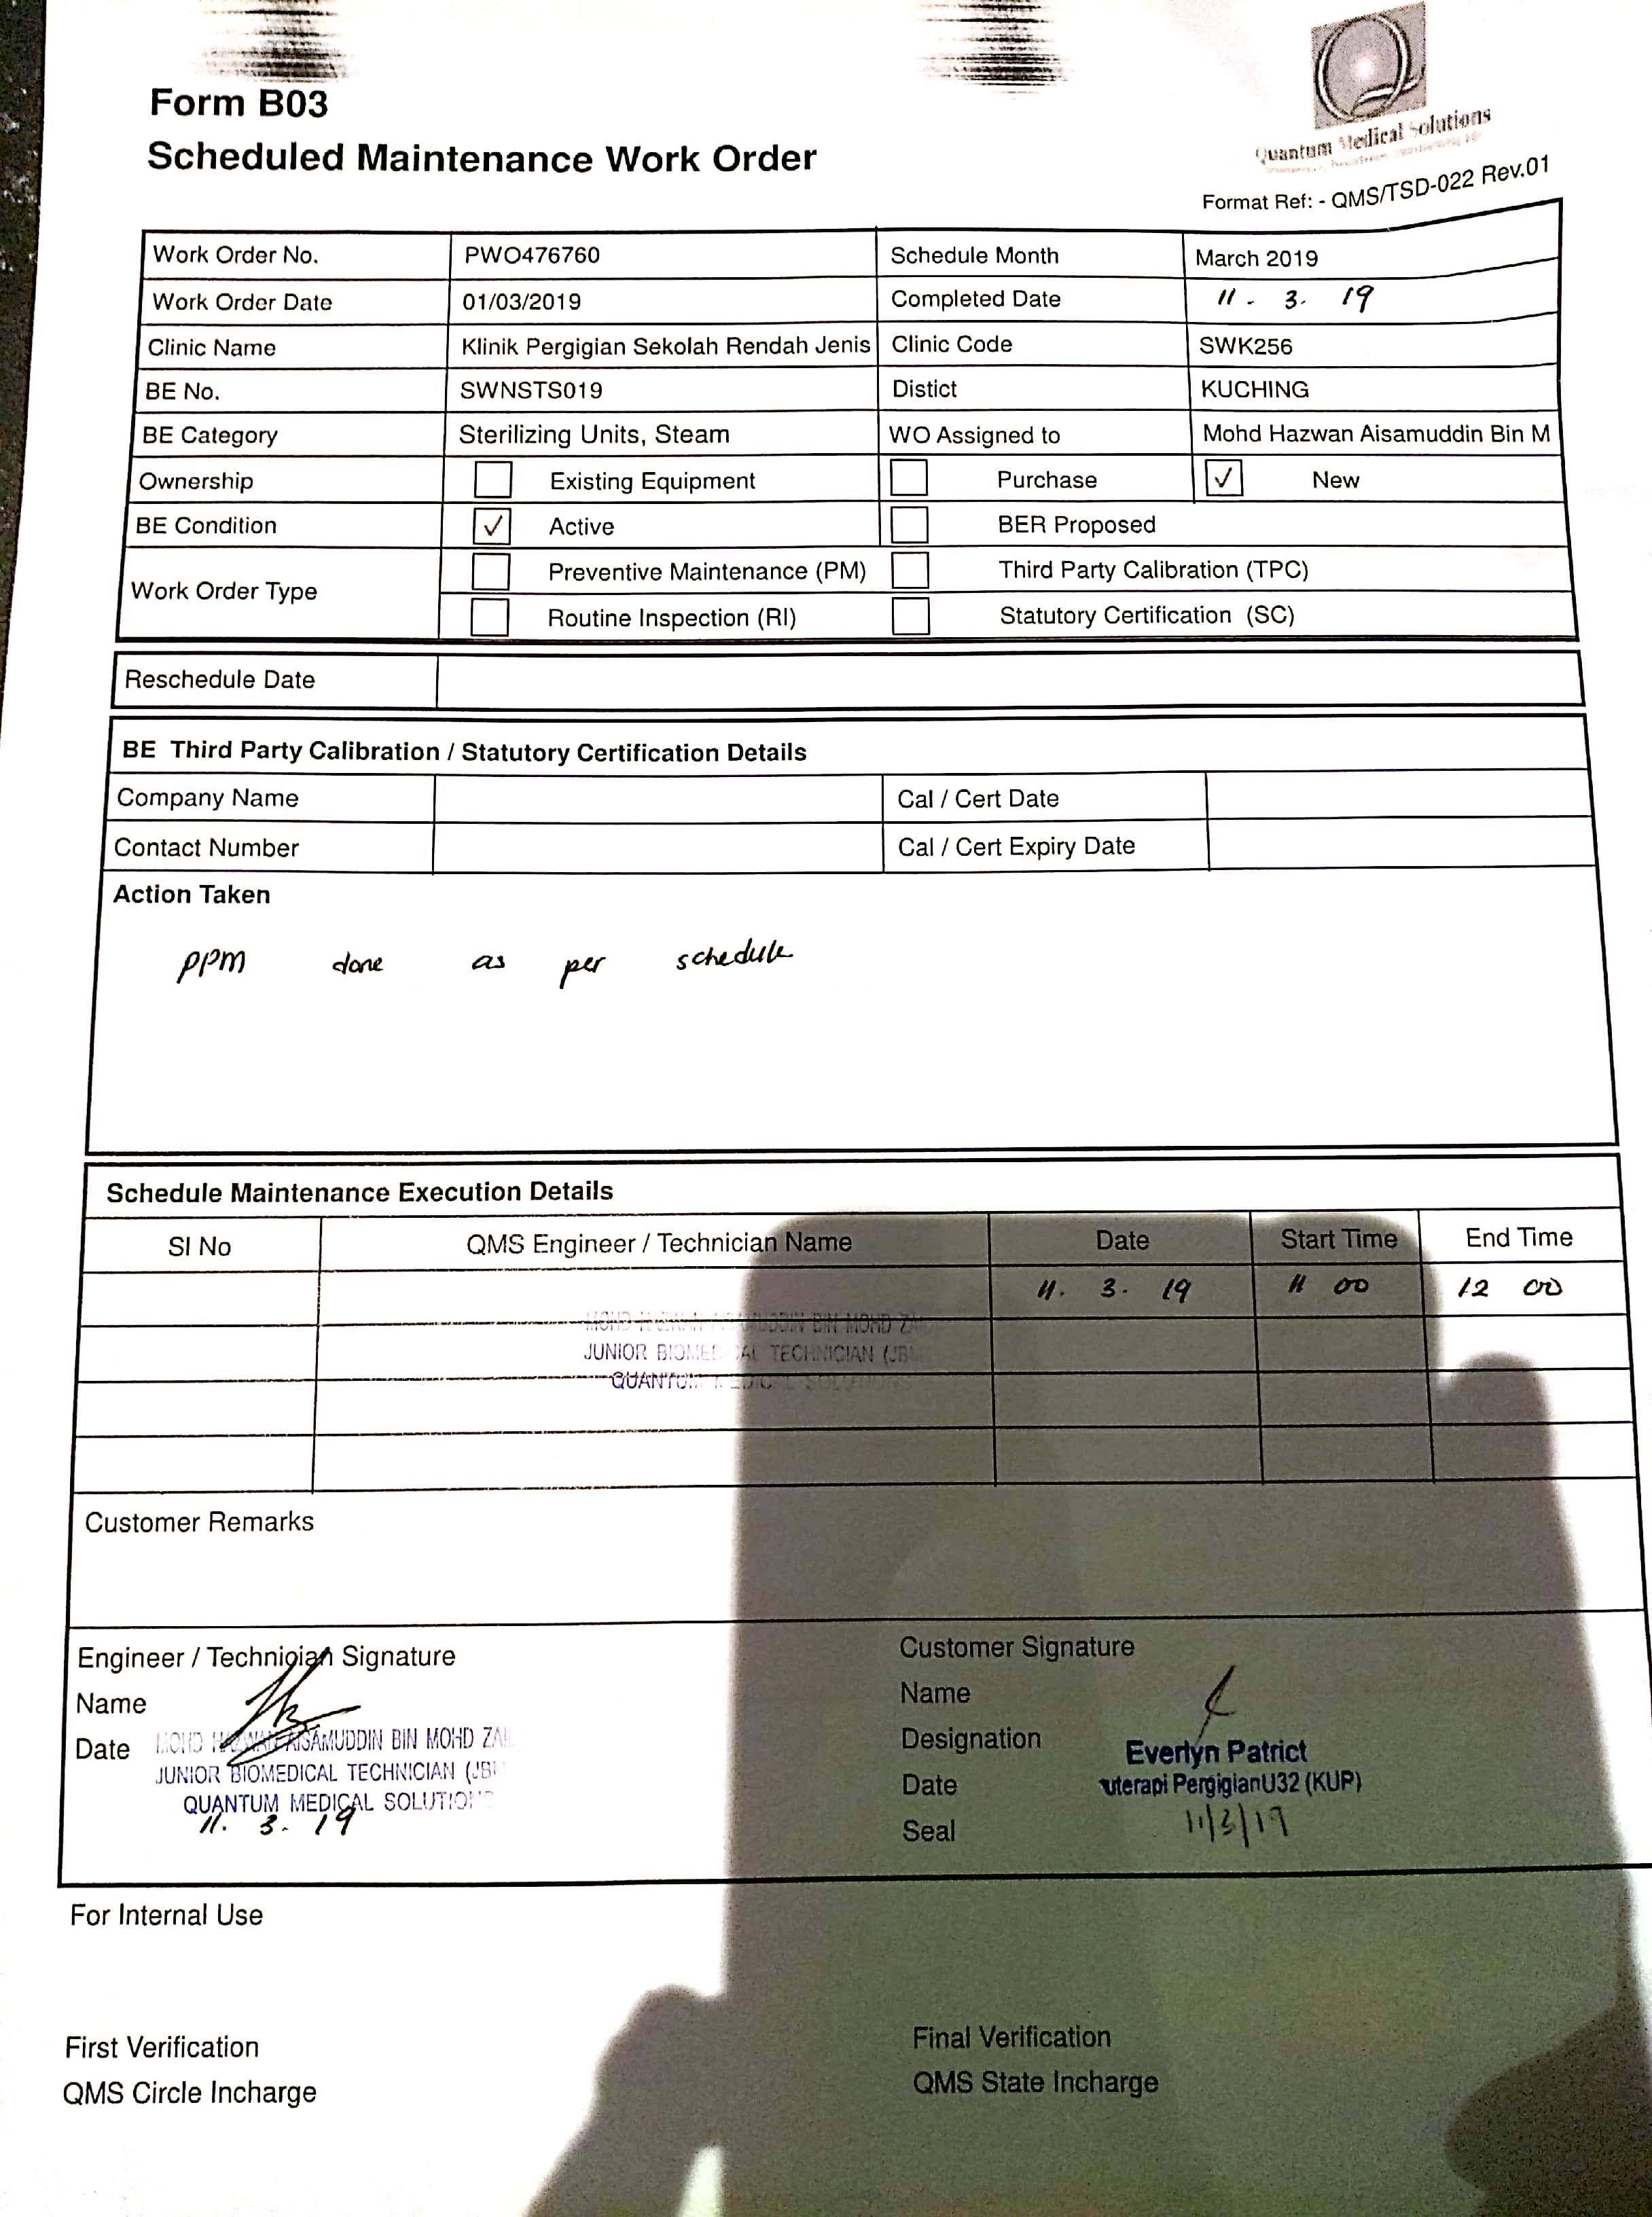 Form B03
Scheduled Maintenance Work Order
Quantum Medical Solutions
Format Ref: - QMS/TSD-022 Rev.01
Work Order No. PWO476760 Schedule Month March 2019
Work Order Date 01/03/2019 Completed Date 11 . 3 . 19
Clinic Name Klinik Pergigian Sekolah Rendah Jenis Clinic Code SWK256
BE No. SWNSTS019 Distict KUCHING
BE Category Sterilizing Units, Steam WO Assigned to Mohd Hazwan Aisamuddin Bin M
Ownership Existing Equipment Purchase ✓ New
BE Condition ✓ Active BER Proposed
Work Order Type Preventive Maintenance (PM) Third Party Calibration (TPC)
Routine Inspection (RI) Statutory Certification (SC)
Reschedule Date
BE Third Party Calibration / Statutory Certification Details
Company Name Cal / Cert Date
Contact Number Cal / Cert Expiry Date
Action Taken
ppm done as per schedule
Schedule Maintenance Execution Details
SI No QMS Engineer / Technician Name Date Start Time End Time
11 . 3 . 19 11 00 12 00
BIN MOHD
JUNIOR BIOMEDICAL TECHNICIAN
QUANTUM MEDICAL
Customer Remarks
Engineer / Technician Signature
Name
Date MOHD HAZWAN AISAMUDDIN BIN MOHD
JUNIOR BIOMEDICAL TECHNICIAN
QUANTUM MEDICAL SOLUTIONS
11 . 3 . 19
Customer Signature
Name
Designation Everlyn Patrict
Date uterapi PergigianU32 (KUP)
Seal 11/3/19
For Internal Use
First Verification Final Verification
QMS Circle Incharge QMS State Incharge